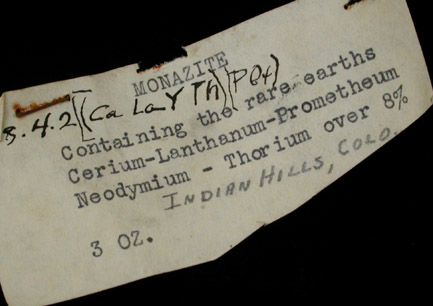 MONAZITE
8.4.2 (Ca La Y Th)(PO4)
Containing the rare earths
Cerium-Lanthanum-Prometheum
Neodymium - Thorium over 8%
INDIAN HILLS, COLO.
3 OZ.